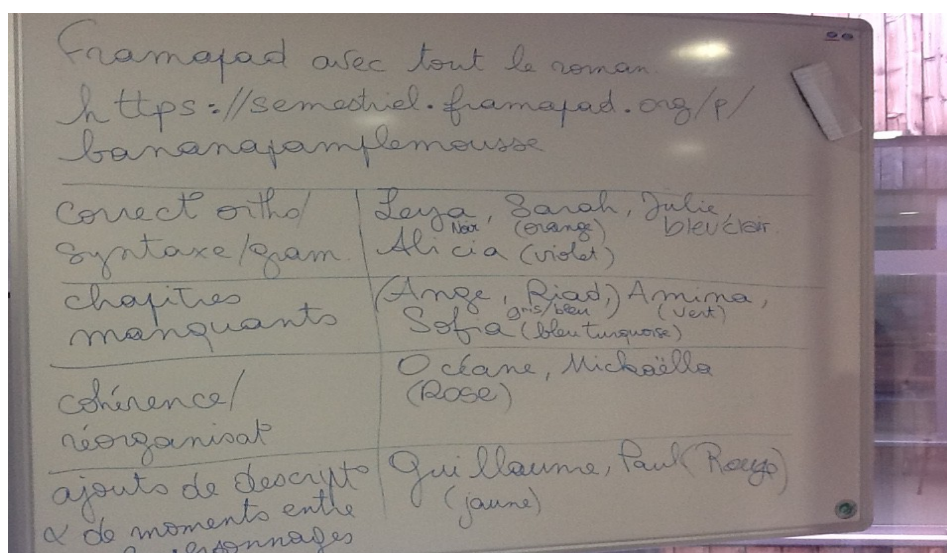 Framapad avec tout le roman.
https://semestriel.framapad.org/p/
bananapamplemousse
Correct ortho/
syntaxe/gram.
Leya, Sarah, Julie,
Noir (orange) bleu clair.
Alicia (violet)
chapitres
manquants
(Ange, Riad,) Amina,
gris/bleu (vert)
Sofia (bleu turquoise)
cohérence/
réorganisat°
Océane, Mickaëlla
(Rose)
ajouts de descript°
& de moments entre
personnages
Guillaume, Paul (Rouge)
(jaune)